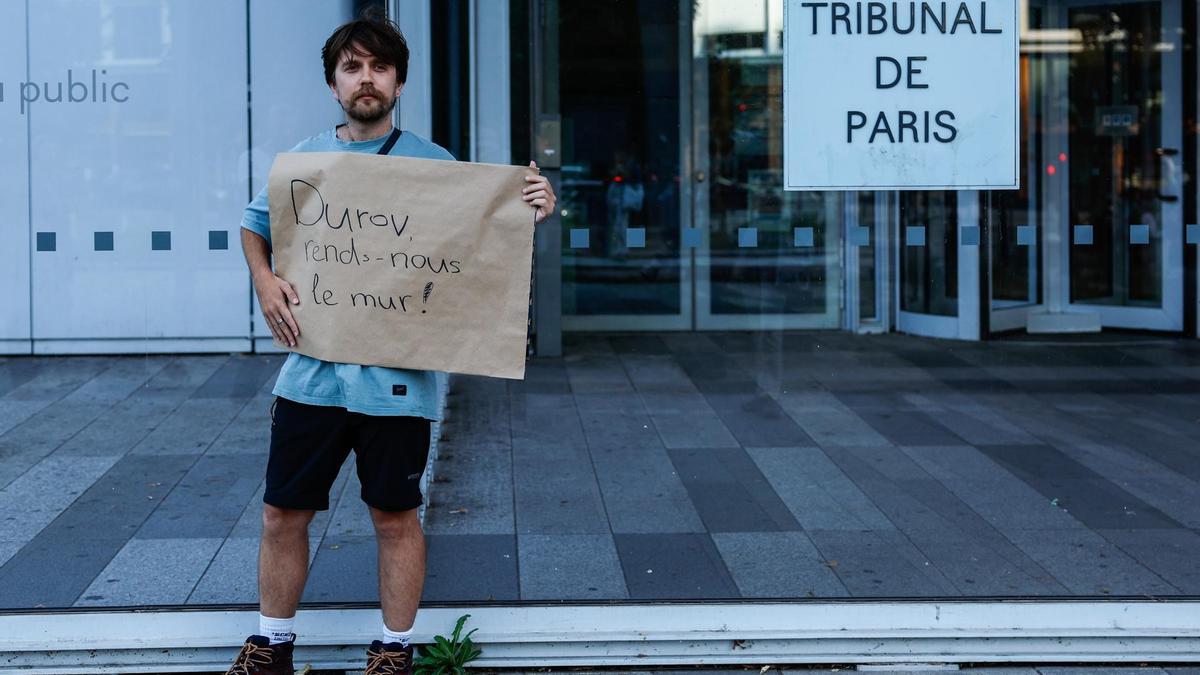 public
TRIBUNAL
DE
PARIS
Durov,
rends-nous
le mur!